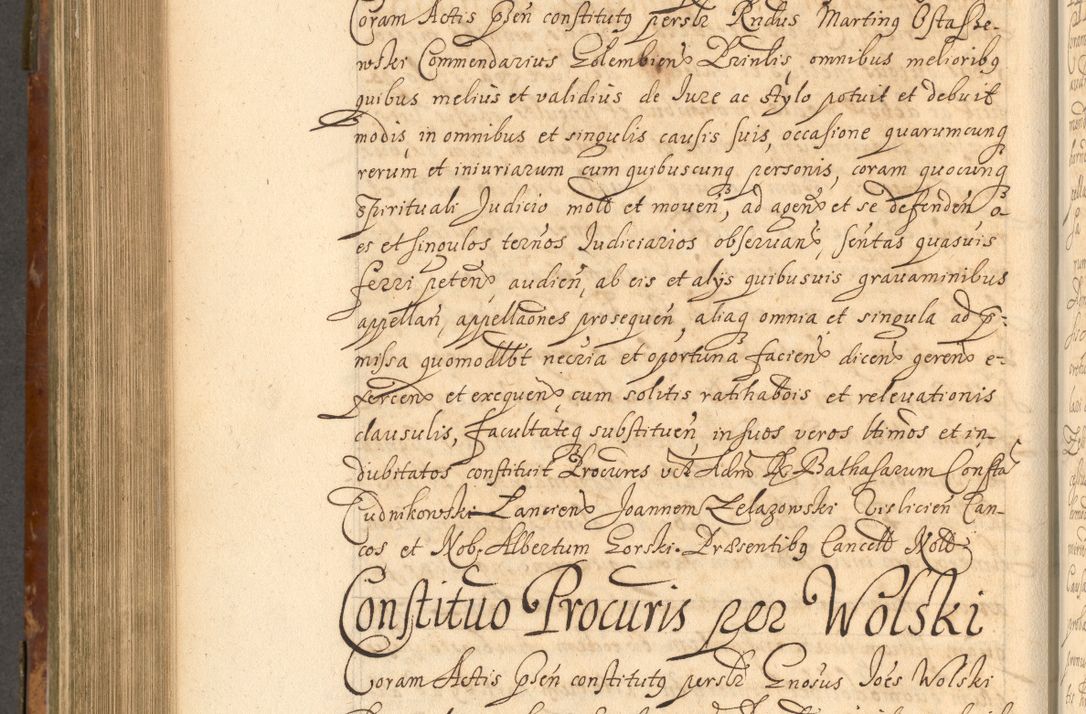 Coram Actis psen constitutq persłr Rndus Martinq Ostasze-
wski Commendarius Golembien Prinlis omnibus melioribq
quibus melius et validius de Iure ac stylo potuit et debuit
modis, in omnibus et singulis causis suis, occasione quarumcunq
rerum et iniuriarum cum quibuscunq personis, coram quocunq
spirituali Judicio mott et moven, ad agen et se defenden o-
es et singulos ternos Iudiciarios observan, sentas quasvis
ferri peten, audien, ab eis et alys quibusvis gravaminibus
appellan, appellaones prosequen, aliaq omnia et singula ad p-
missa quomodlbt necria et oportuna facien dicen geren e-
xercen et exequen cum solitis ratihabois et relevationis
clausulis, facultateq substituen in suos veros ltimos et in-
dubitatos constituit Procures Adm R Balthasarum Consta
Cudnikowski Lancien Joannem Zelazowski Vislicien Can-
cos et Nob. Albertum Gorski. Præsentibq Cancell Nott
Constituo Procuris per Wolski
Coram Actis psen constitutq persłr Gnosus Joes Wolski